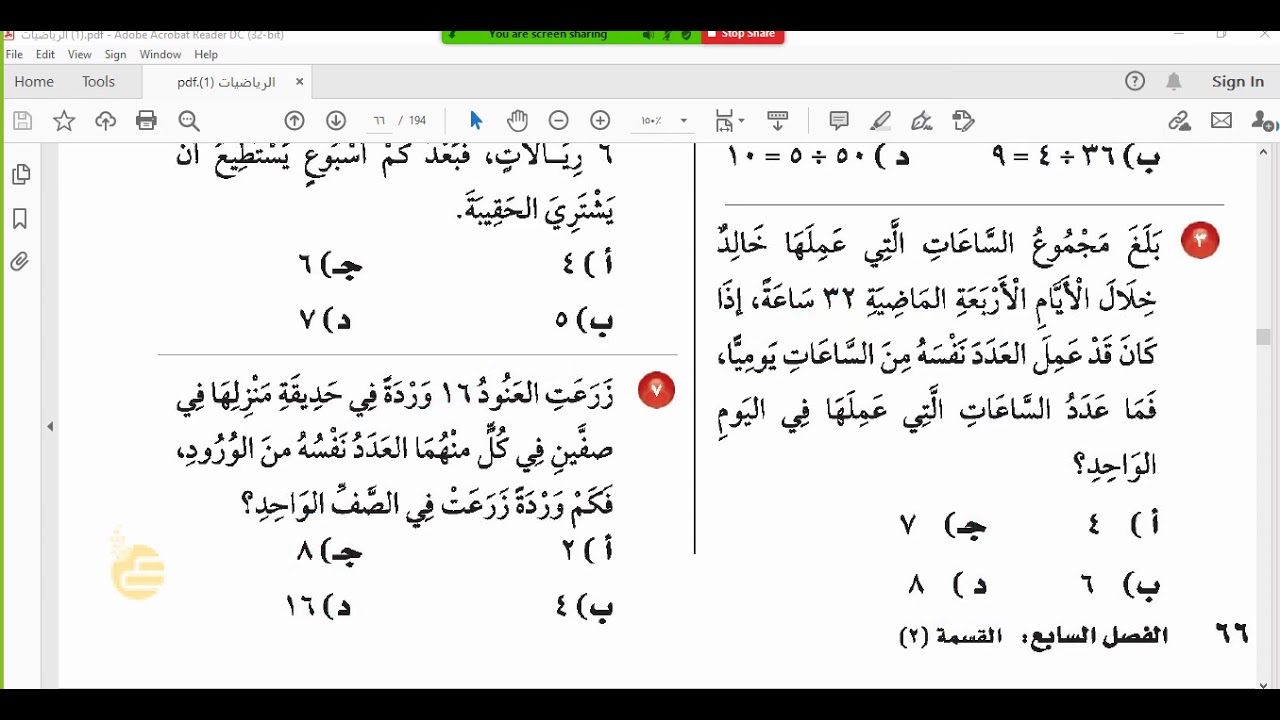 الرياضيات (1).pdf - Adobe Acrobat Reader DC (32-bit)
You are screen sharing
Stop Share
File Edit View Sign Window Help
Home Tools الرياضيات (1).pdf × Sign In
٦٦ / 194
١٥٠٪
ب) ٣٦ ÷ ٤ = ٩ د ) ٥٠ ÷ ٥ = ١٠
٣ بَلَغَ مَجْمُوعُ السَّاعَاتِ الَّتِي عَمِلَهَا خَالِدٌ
خِلَالَ الْأَيَّامِ الْأَرْبَعَةِ المَاضِيَةِ ٣٢ سَاعَةً، إذَا
كَانَ قَدْ عَمِلَ العَدَدَ نَفْسَهُ مِنَ السَّاعَاتِ يَوميًّا،
فَمَا عَدَدُ السَّاعَاتِ الَّتِي عَمِلَهَا فِي اليَومِ
الوَاحِدِ؟
أ ) ٤ جـ) ٧
ب) ٦ د ) ٨
٦٦ الفصل السابع: القسمة (٢)
٦ رِيَـالَاتٍ، فَبَعْدَ كَمْ أُسْبُوعٍ يَسْتَطِيعُ أَنْ
يَشْتَرِيَ الحَقِيبَةَ.
أ ) ٤ جـ) ٦
ب) ٥ د) ٧
٧ زَرَعَتِ العَنُودُ ١٦ وَرْدَةً فِي حَدِيقَةِ مَنْزِلِهَا فِي
صفَّينِ فِي كُلٍّ منْهُمَا العَدَدُ نَفْسُهُ منَ الوُرُودِ،
فَكَمْ وَرْدَةً زَرَعَتْ فِي الصَّفِّ الوَاحِدِ؟
أ ) ٢ جـ) ٨
ب) ٤ د) ١٦